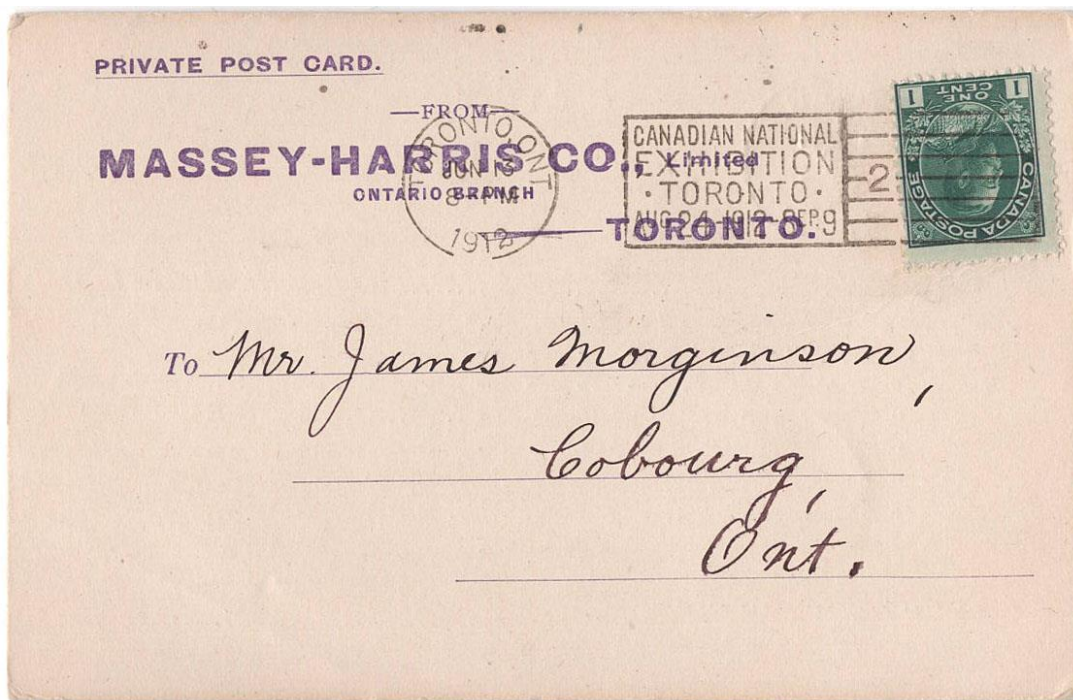 PRIVATE POST CARD.
—FROM—
MASSEY-HARRIS CO., Limited
ONTARIO BRANCH
TORONTO.
TORONTO, ONT
JUN 13
8 PM
1912
CANADIAN NATIONAL
EXHIBITION
· TORONTO ·
AUG. 24-1912-SEP. 9
2
1 ONE CENT 1
CANADA POSTAGE
To Mr. James Morginson,
Cobourg,
Ont.